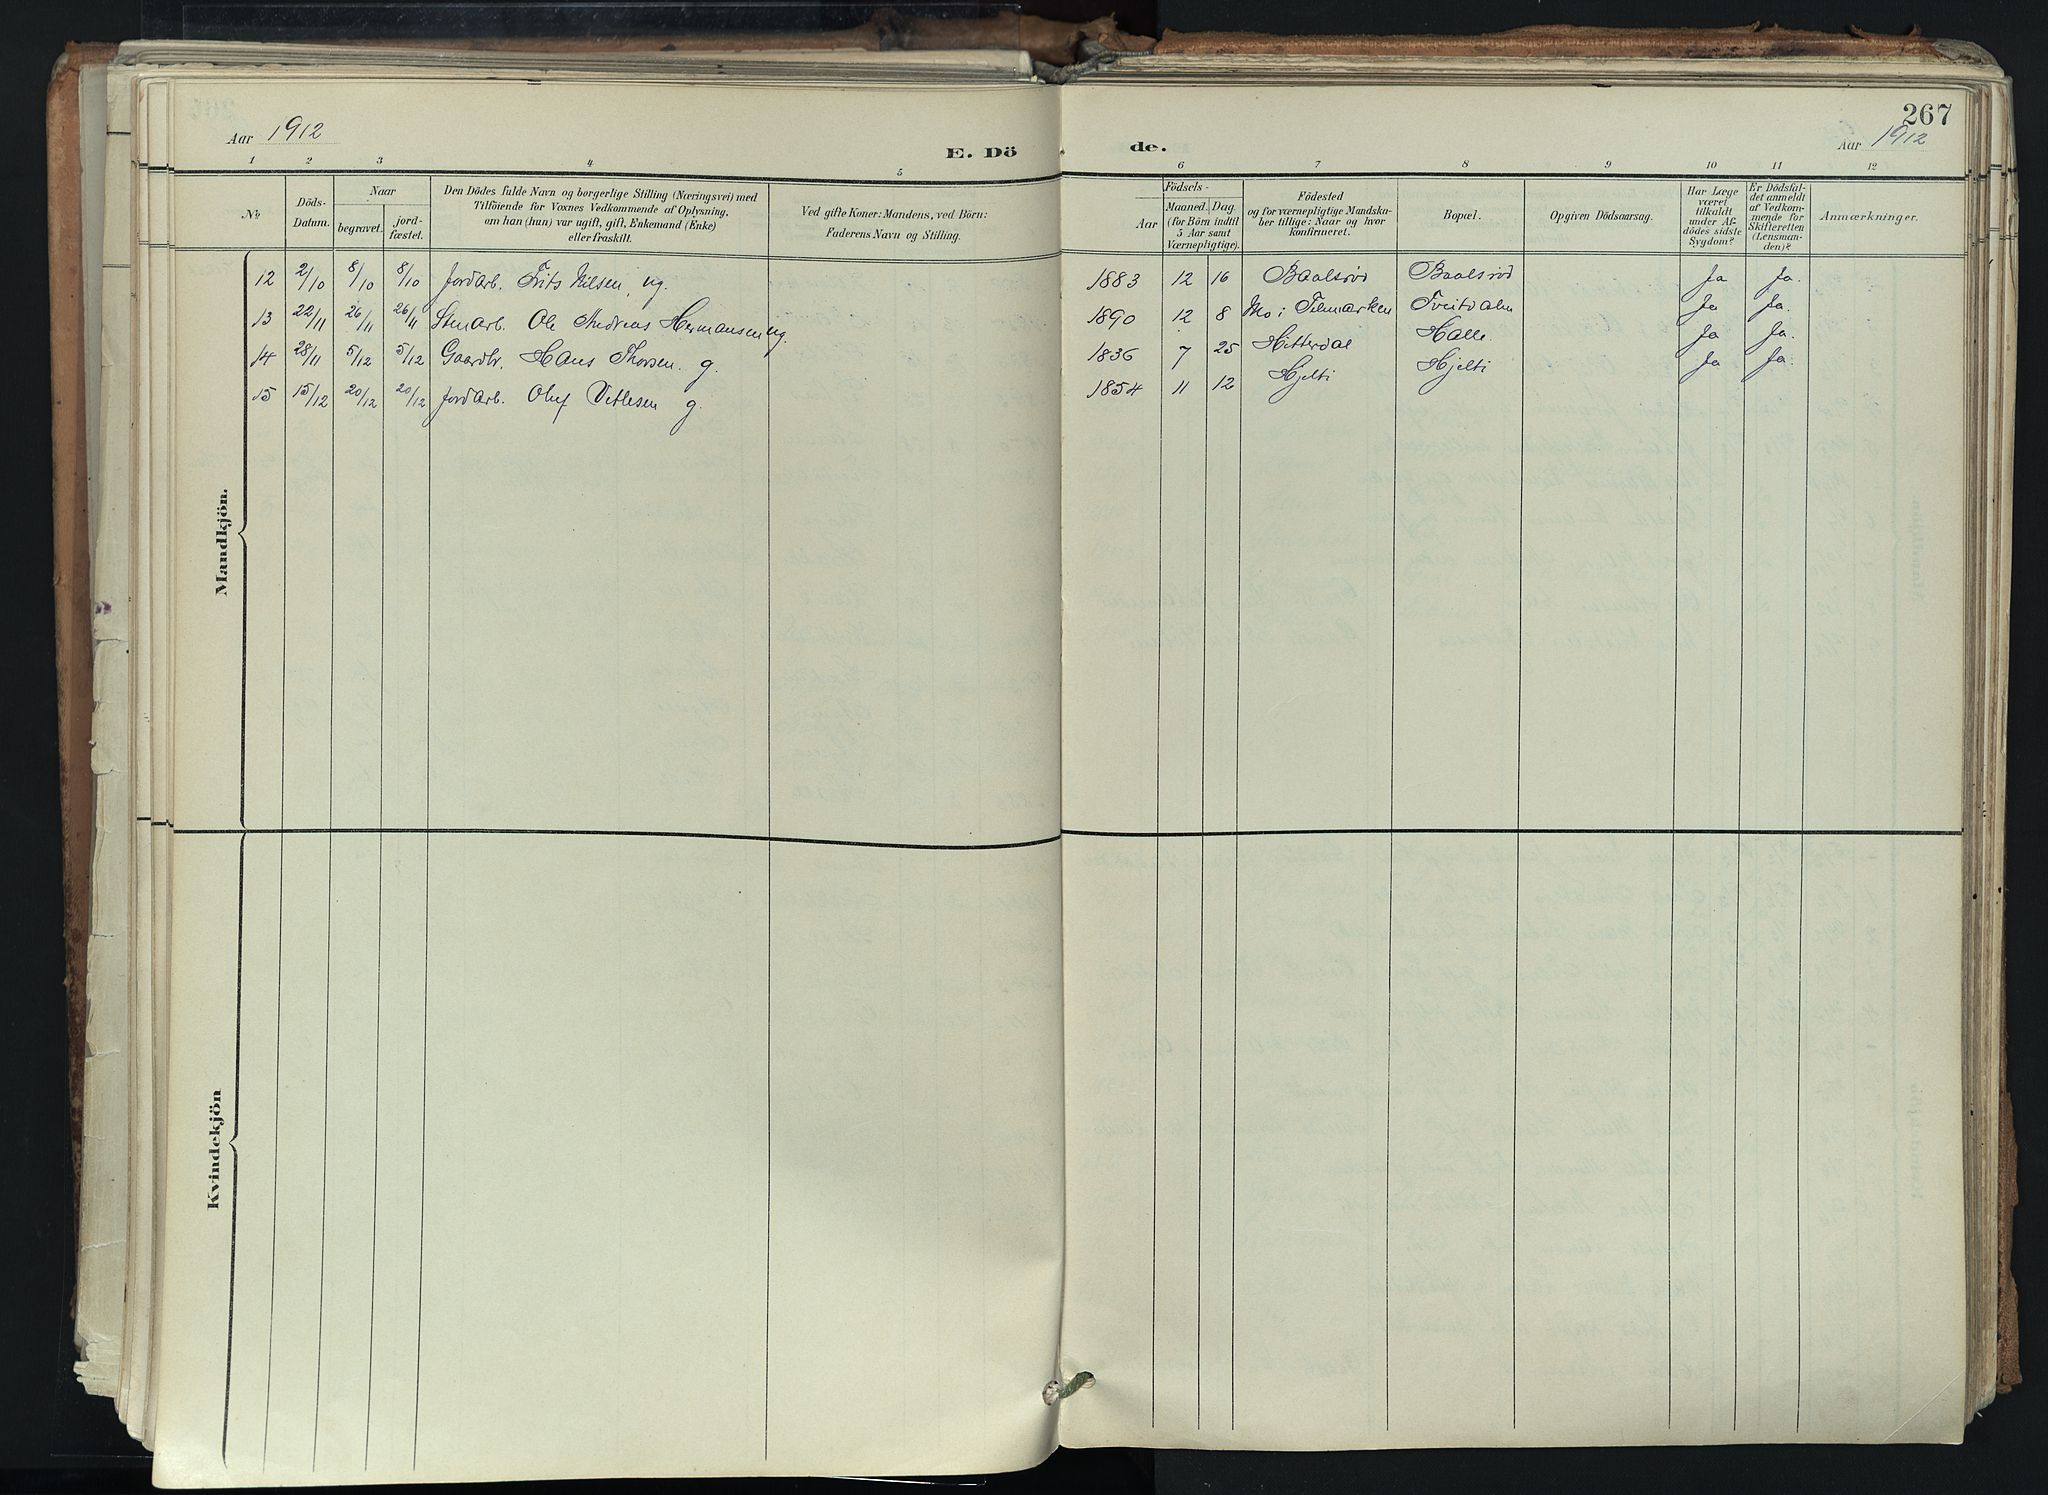 267
Aar 1912
E. Dö
de.
Aar 1912
1 2 3 4 5 6 7 8 9 10 11 12
№
Döds-
Datum.
Naar
begravet.
jord-
fæstet.
Den Dödes fulde Navn og borgerlige Stilling (Næringsvei) med
Tilföiende for Voxnes Vedkommende af Oplysning,
om han (hun) var ugift, gift, Enkemand (Enke)
eller fraskilt.
Ved gifte Koner: Mandens, ved Börn:
Faderens Navn og Stilling.
Födsels-
Aar
Maaned. Dag.
(for Börn indtil
5 Aar samt
Værnepligtige).
Födested
og for værnepligtige Mandska-
ber tillige: Naar og hvor
konfirmeret.
Bopæl.
Opgiven Dödsaarsag.
Har Læge
været
tilkaldt
under Af-
dödes sidste
Sygdom?
Er Dödsfal-
det anmeldt
af Vedkom-
mende for
Skifteretten
(Lensman-
den)?
Anmærkninger.
Mandkjön.
12 2/10 8/10 8/10 Jordarb. Frits Nilsen, ug. 1883 12 16 Baalsrød Baalsrød Ja Ja.
13 22/11 26/11 26/11 Stenarb. Ole Andreas Hermansen ug. 1890 12 8 Mo i Telmarken Treitdalen Ja Ja.
14 28/11 5/12 5/12 Gaardbr. Hans Thorsen. g. 1836 7 25 Hitterdal Halle. Ja Ja.
15 15/12 20/12 20/12 Jordarb. Oluf Vetlesen g. 1854 11 12 Hjelti Hjelti Ja Ja.
Kvindekjön